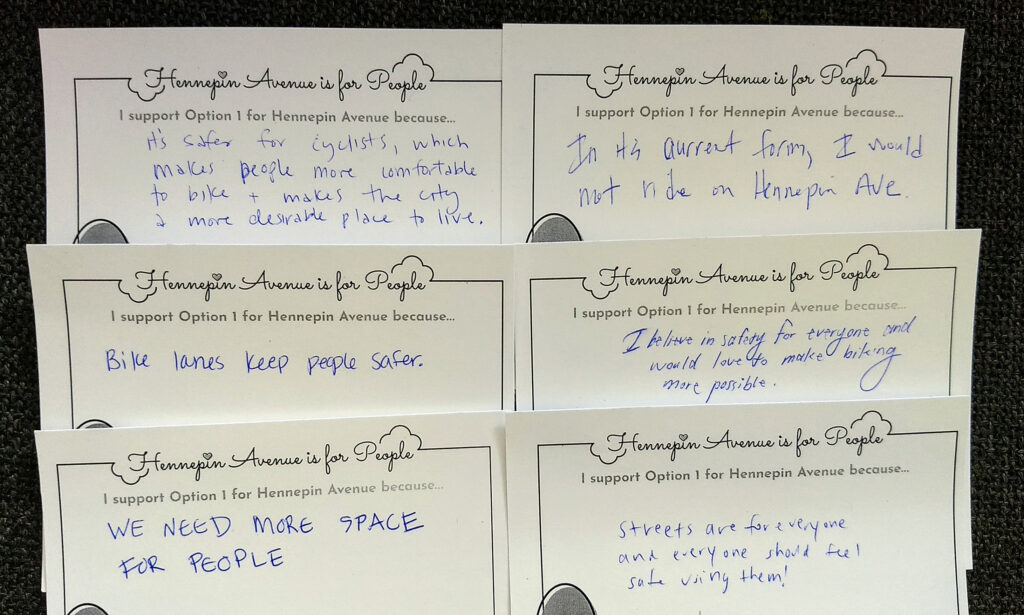 Hennepin Avenue is for People
I support Option 1 for Hennepin Avenue because...
it's safer for cyclists, which
makes people more comfortable
to bike + makes the city
a more desirable place to live.
Hennepin Avenue is for People
I support Option 1 for Hennepin Avenue because...
In its current form, I would
not ride on Hennepin Ave.
Hennepin Avenue is for People
I support Option 1 for Hennepin Avenue because...
Bike lanes keep people safer.
Hennepin Avenue is for People
I support Option 1 for Hennepin Avenue because...
I believe in safety for everyone and
would love to make biking
more possible.
Hennepin Avenue is for People
I support Option 1 for Hennepin Avenue because...
WE NEED MORE SPACE
FOR PEOPLE
Hennepin Avenue is for People
I support Option 1 for Hennepin Avenue because...
Streets are for everyone
and everyone should feel
safe using them!